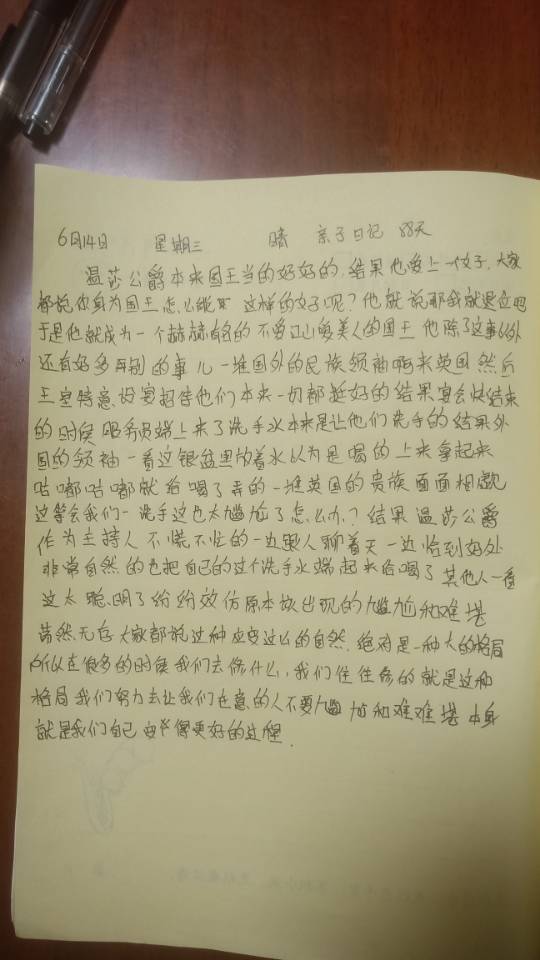 6月14日 星期三 晴 亲子日记 88天
温莎公爵本来国王当的好好的,结果他爱上一女子,大家
都说你身为国王怎么能取这样的女子呢?他就说那我就退位吧
于是他就成为一个赫赫有名的不爱江山爱美人的国王 他除了这事以外
还有好多再别的事儿一堆国外的民族领袖啊来英国然后
王室特意设宴招待他们本来一切都挺好的结果宴会快结束
的时候服务员端上来了洗手水本来是让他们洗手的结果外
国的领袖一看这银盆里放着水以为是喝的上来拿起来
咕嘟咕嘟就给喝了弄的一堆英国的贵族面面相觑
这等会我们一洗手这也太尴尬了怎么办?结果温莎公爵
作为主持人不慌不忙的一边跟人聊着天一边恰到好处
非常自然的也把自己的这个洗手水端起来给喝了其他人一看
这太聪明了纷纷效仿原本该出现的尴尬和难堪
荡然无存大家都说这种应变这么的自然,绝对是一种大的格局
所以在很多的时候我们去修什么,我们往往修的就是这种
格局我们努力去让我们在意的人不要尴尬和难难堪本身
就是我们自己变得更好的过程.